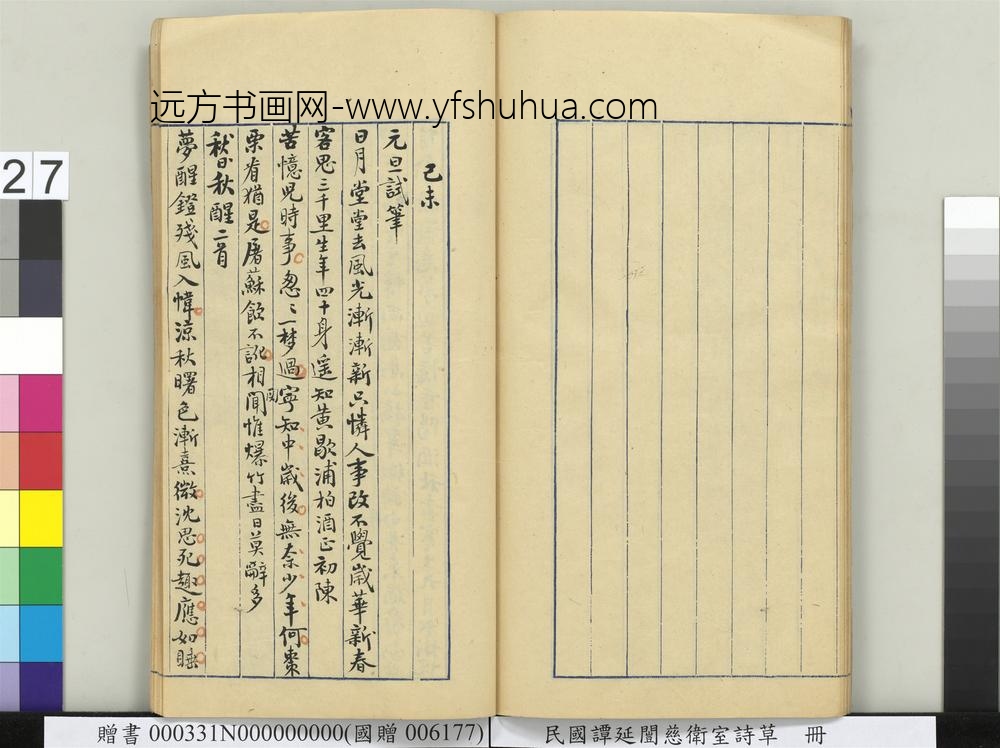 远方书画网-www.yfshuhua.com
27
己未
元旦試筆
日月堂堂去風光漸漸新只憐人事改不覺歲華新春
客思三千里生年四十身遥知黄歇浦柏酒正初陳
苦憶兒時事怱〻一梦過寧知中歲後無奈少年何棗
栗看猶是屠蘇飲不訛相聞惟爆竹盡日莫辭多
閲
秋日秋醒二首
夢醒鐙殘風入幃涼秋曙色漸熹微沈思死趣應如睡
贈書 000331N000000000(國贈 006177)
民國譚延闓慈衛室詩草 冊